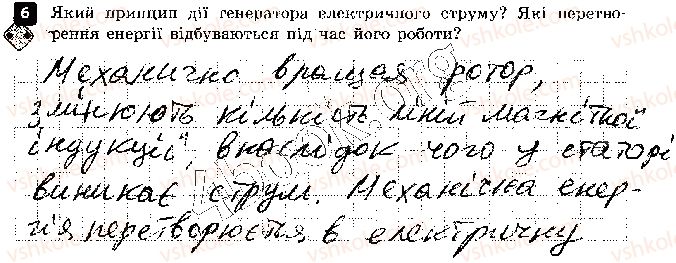 6 Який принцип дії генератора електричного струму? Які перетво-
рення енергії відбуваються під час його роботи?
Механично вращая ротор,
змінюють кількість ліній магнітної
індукції, внаслідок чого у статорі
виникає струм. Механічна енер-
гія перетворюється в електричну